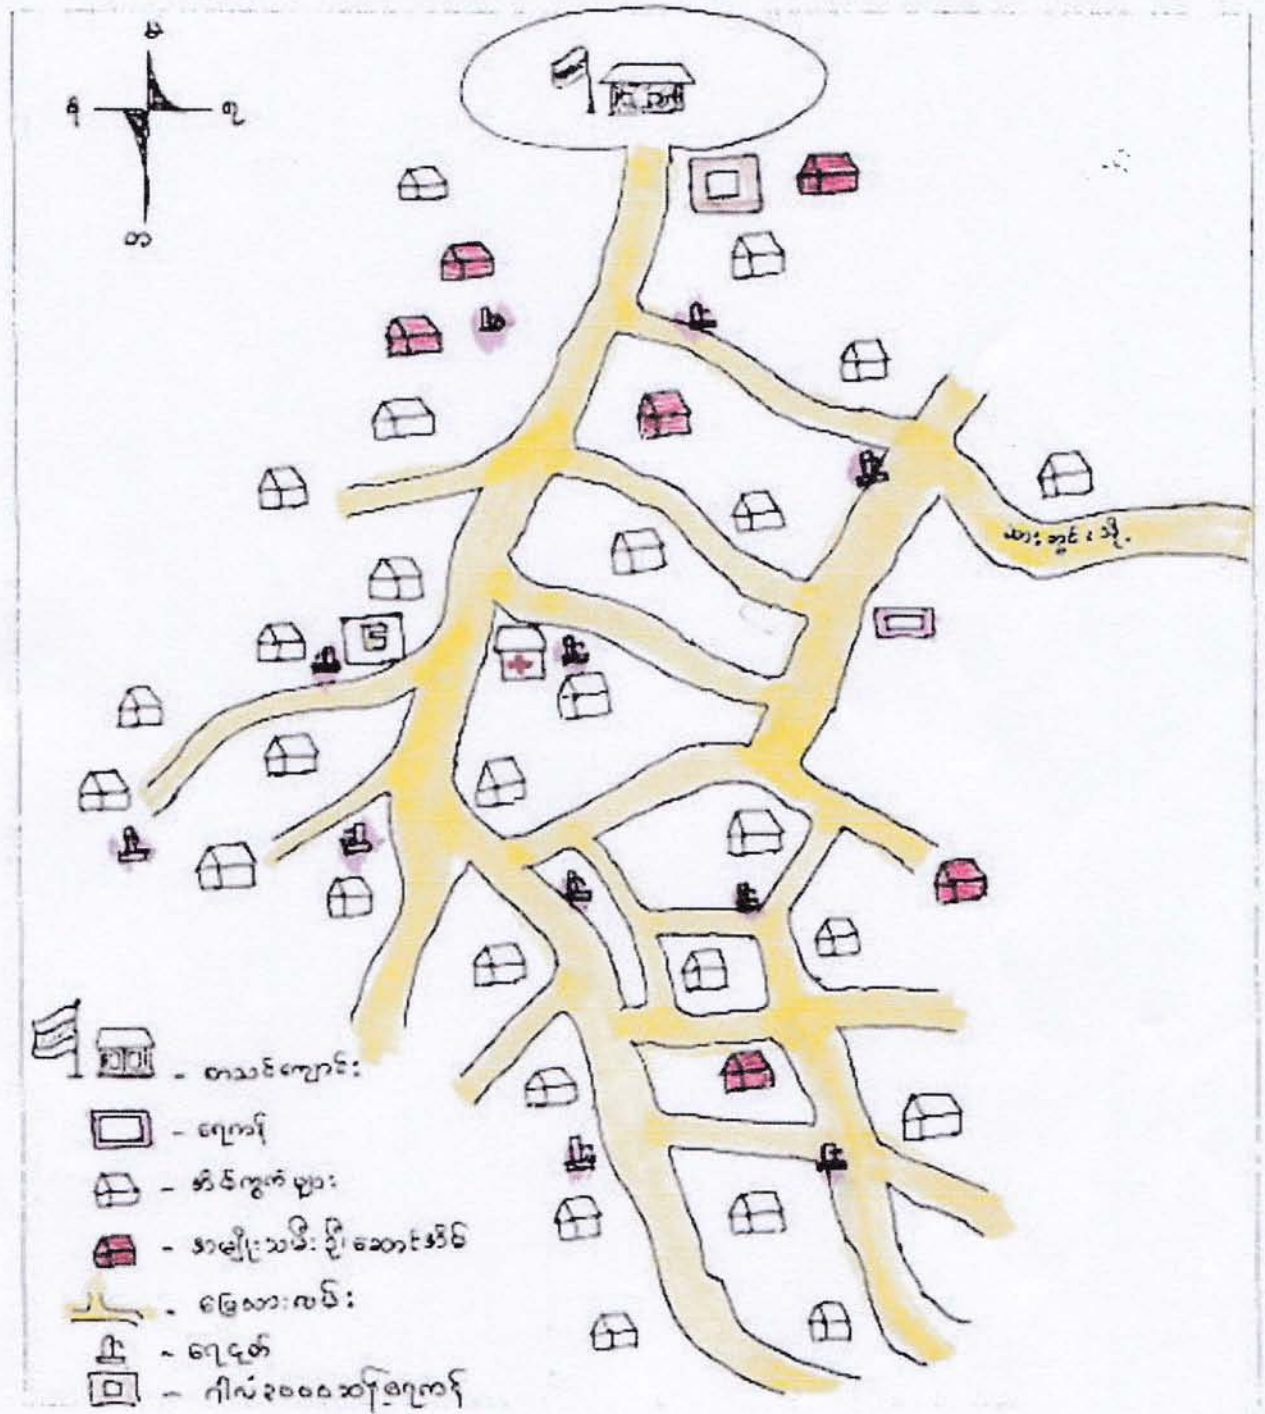 မ
တ
ဆားတွင်းသို့
- စာသင်ကျောင်း
- ရေကန်
- အိမ်ကွက်များ
- အမျိုးသမီးဦးဆောင်အိမ်
- မြေသားလမ်း
- ရေငုတ်
- ဂါလံ ၃၀၀၀ ဆန့်ရေကန်